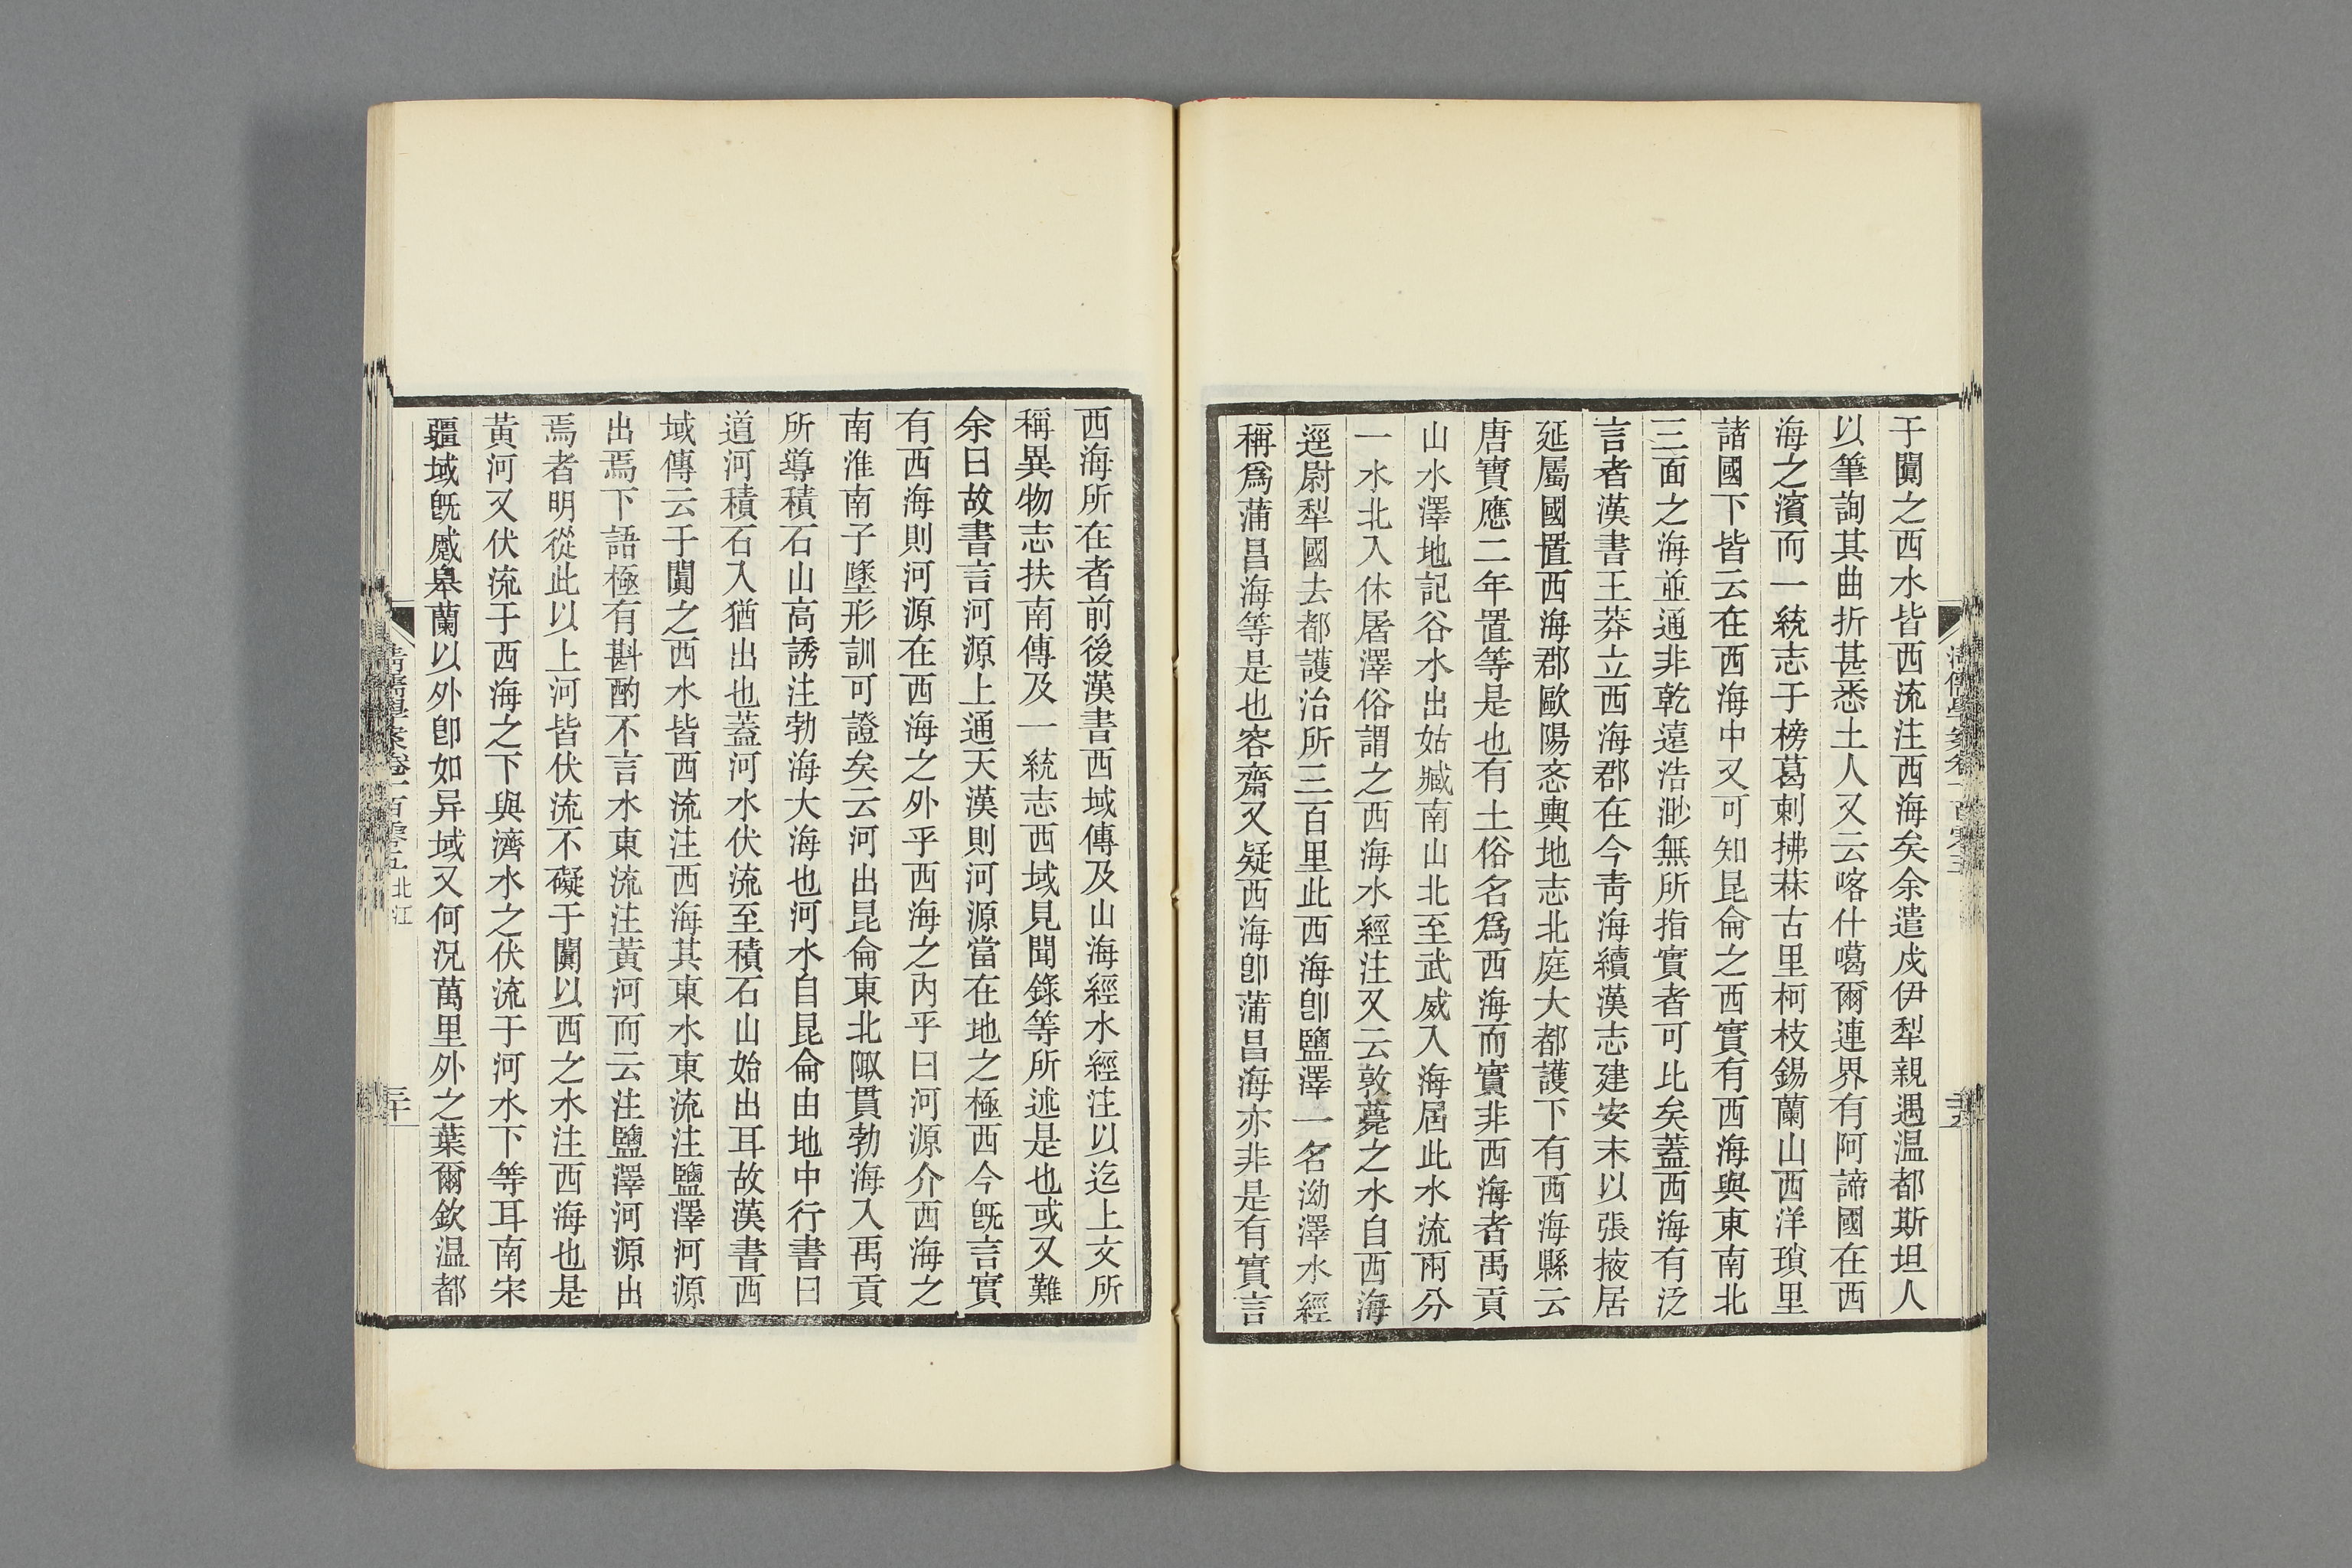 于闐之西水皆西流注西海矣余遣戍伊犁親遇温都斯坦人
以筆詢其曲折甚悉土人又云喀什噶爾連界有阿諦國在西
海之濱而一統志于榜葛剌拂菻古里柯枝錫蘭山西洋瑣里
諸國下皆云在西海中又可知昆侖之西實有西海與東南北
三面之海並通非乾遠浩渺無所指實者可比矣蓋西海有泛
言者漢書王莽立西海郡在今青海續漢志建安末以張掖居
延屬國置西海郡歐陽忞輿地志北庭大都護下有西海縣云
唐寶應二年置等是也有土俗名爲西海而實非西海者禹貢
山水澤地記谷水出姑臧南山北至武威入海屆此水流兩分
一水北入休屠澤俗謂之西海水經注又云敦薨之水自西海
逕尉犁國去都護治所三百里此西海卽鹽澤一名泑澤水經
稱爲蒲昌海等是也容齋又疑西海卽蒲昌海亦非是有實言
西海所在者前後漢書西域傳及山海經水經注以迄上文所
稱異物志扶南傳及一統志西域見聞錄等所述是也或又難
余曰故書言河源上通天漢則河源當在地之極西今旣言實
有西海則河源在西海之外乎西海之內乎曰河源介西海之
南淮南子墜形訓可證矣云河出昆侖東北陬貫勃海入禹貢
所導積石山高誘注勃海大海也河水自昆侖由地中行書曰
道河積石入猶出也蓋河水伏流至積石山始出耳故漢書西
域傳云于闐之西水皆西流注西海其東水東流注鹽澤河源
出焉下語極有斟酌不言水東流注黃河而云注鹽澤河源出
焉者明從此以上河皆伏流不礙于闐以西之水注西海也是
黃河又伏流于西海之下與濟水之伏流于河水下等耳南宋
疆域旣蹙皋蘭以外卽如异域又何況萬里外之葉爾欽温都
清儒學案卷一百零五 北江 二十